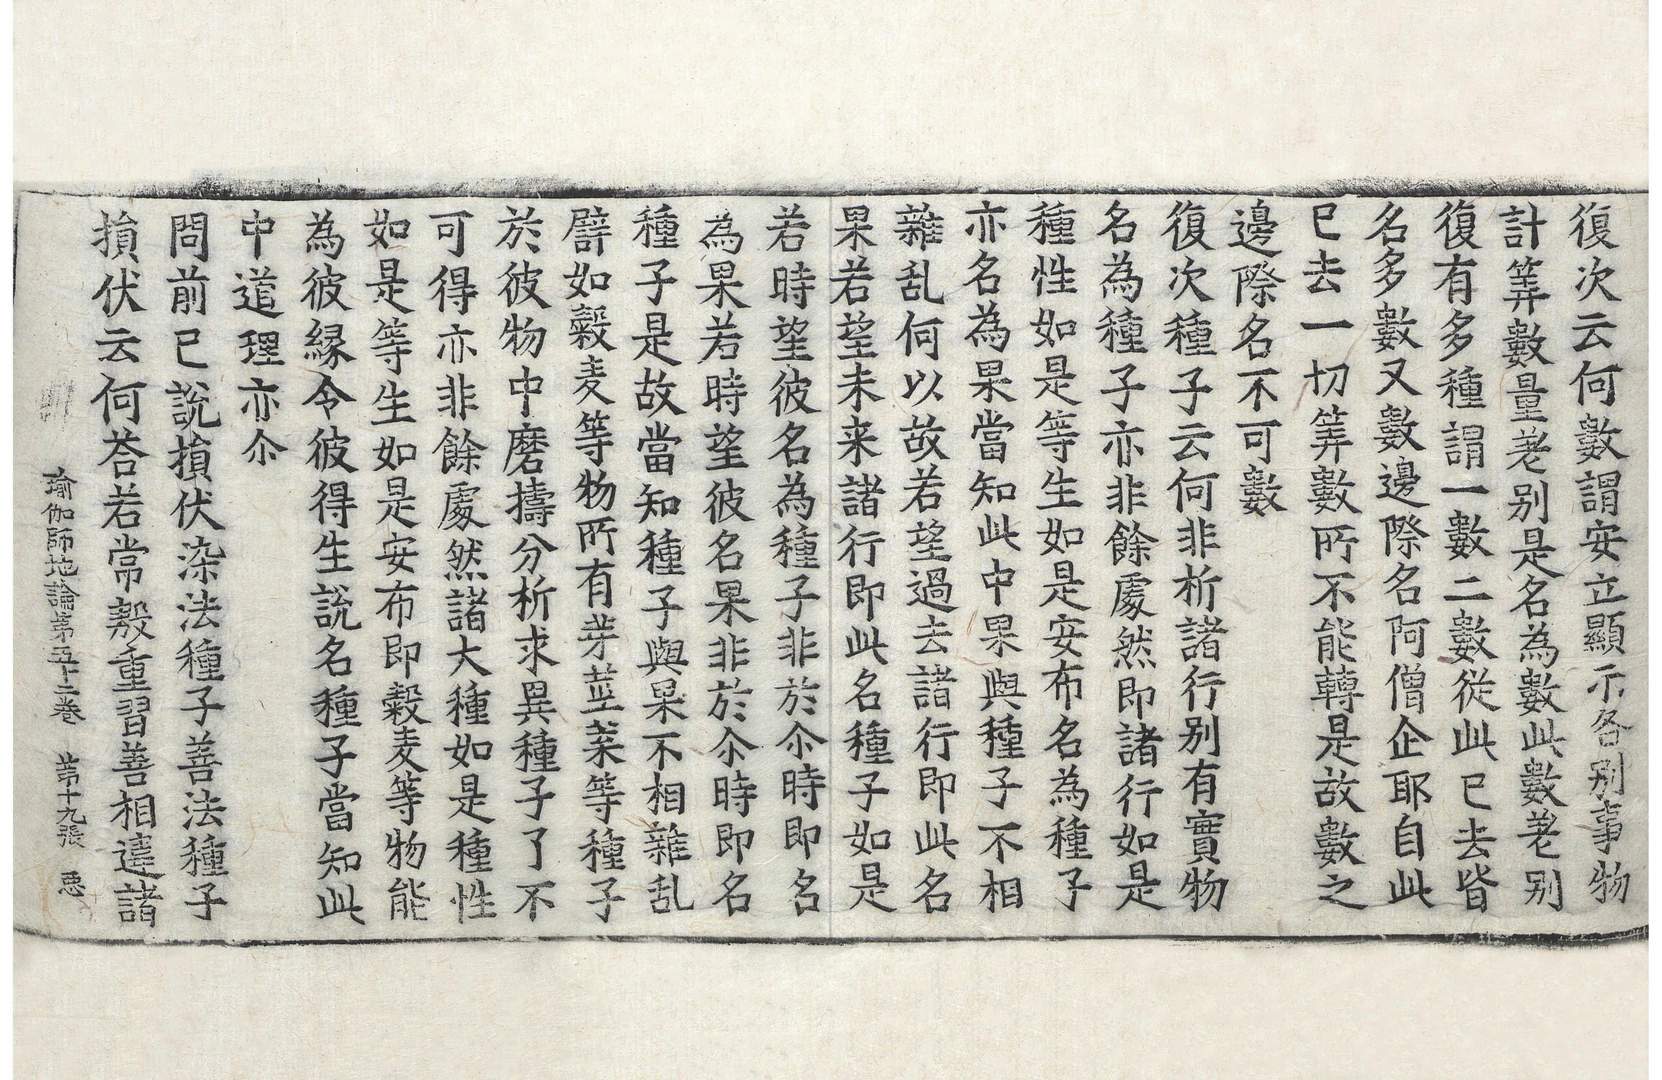 復次云何數謂安立顯示各别事物
計筭數量差别是名為數此數差别
復有多種謂一數二數從此已去皆
名多數又數邊際名阿僧企耶自此
已去一切筭數所不能轉是故數之
邊際名不可數
復次種子云何非析諸行别有實物
名為種子亦非餘處然即諸行如是
種性如是等生如是安布名為種子
亦名為果當知此中果與種子不相
雜乱何以故若望過去諸行即此名
果若望未来諸行即此名種子如是
若時望彼名為種子非於尒時即名
為果若時望彼名果非於尒時即名
種子是故當知種子與果不相雜乱
譬如穀麦等物所有芽莖葉等種子
於彼物中磨擣分析求異種子了不
可得亦非餘處然諸大種如是種性
如是等生如是安布即穀麦等物能
為彼緣令彼得生說名種子當知此
中道理亦尒
問前已說損伏染法種子善法種子
損伏云何荅若常殷重習善相違諸
瑜伽師地論第五十二卷 第十九張 惡